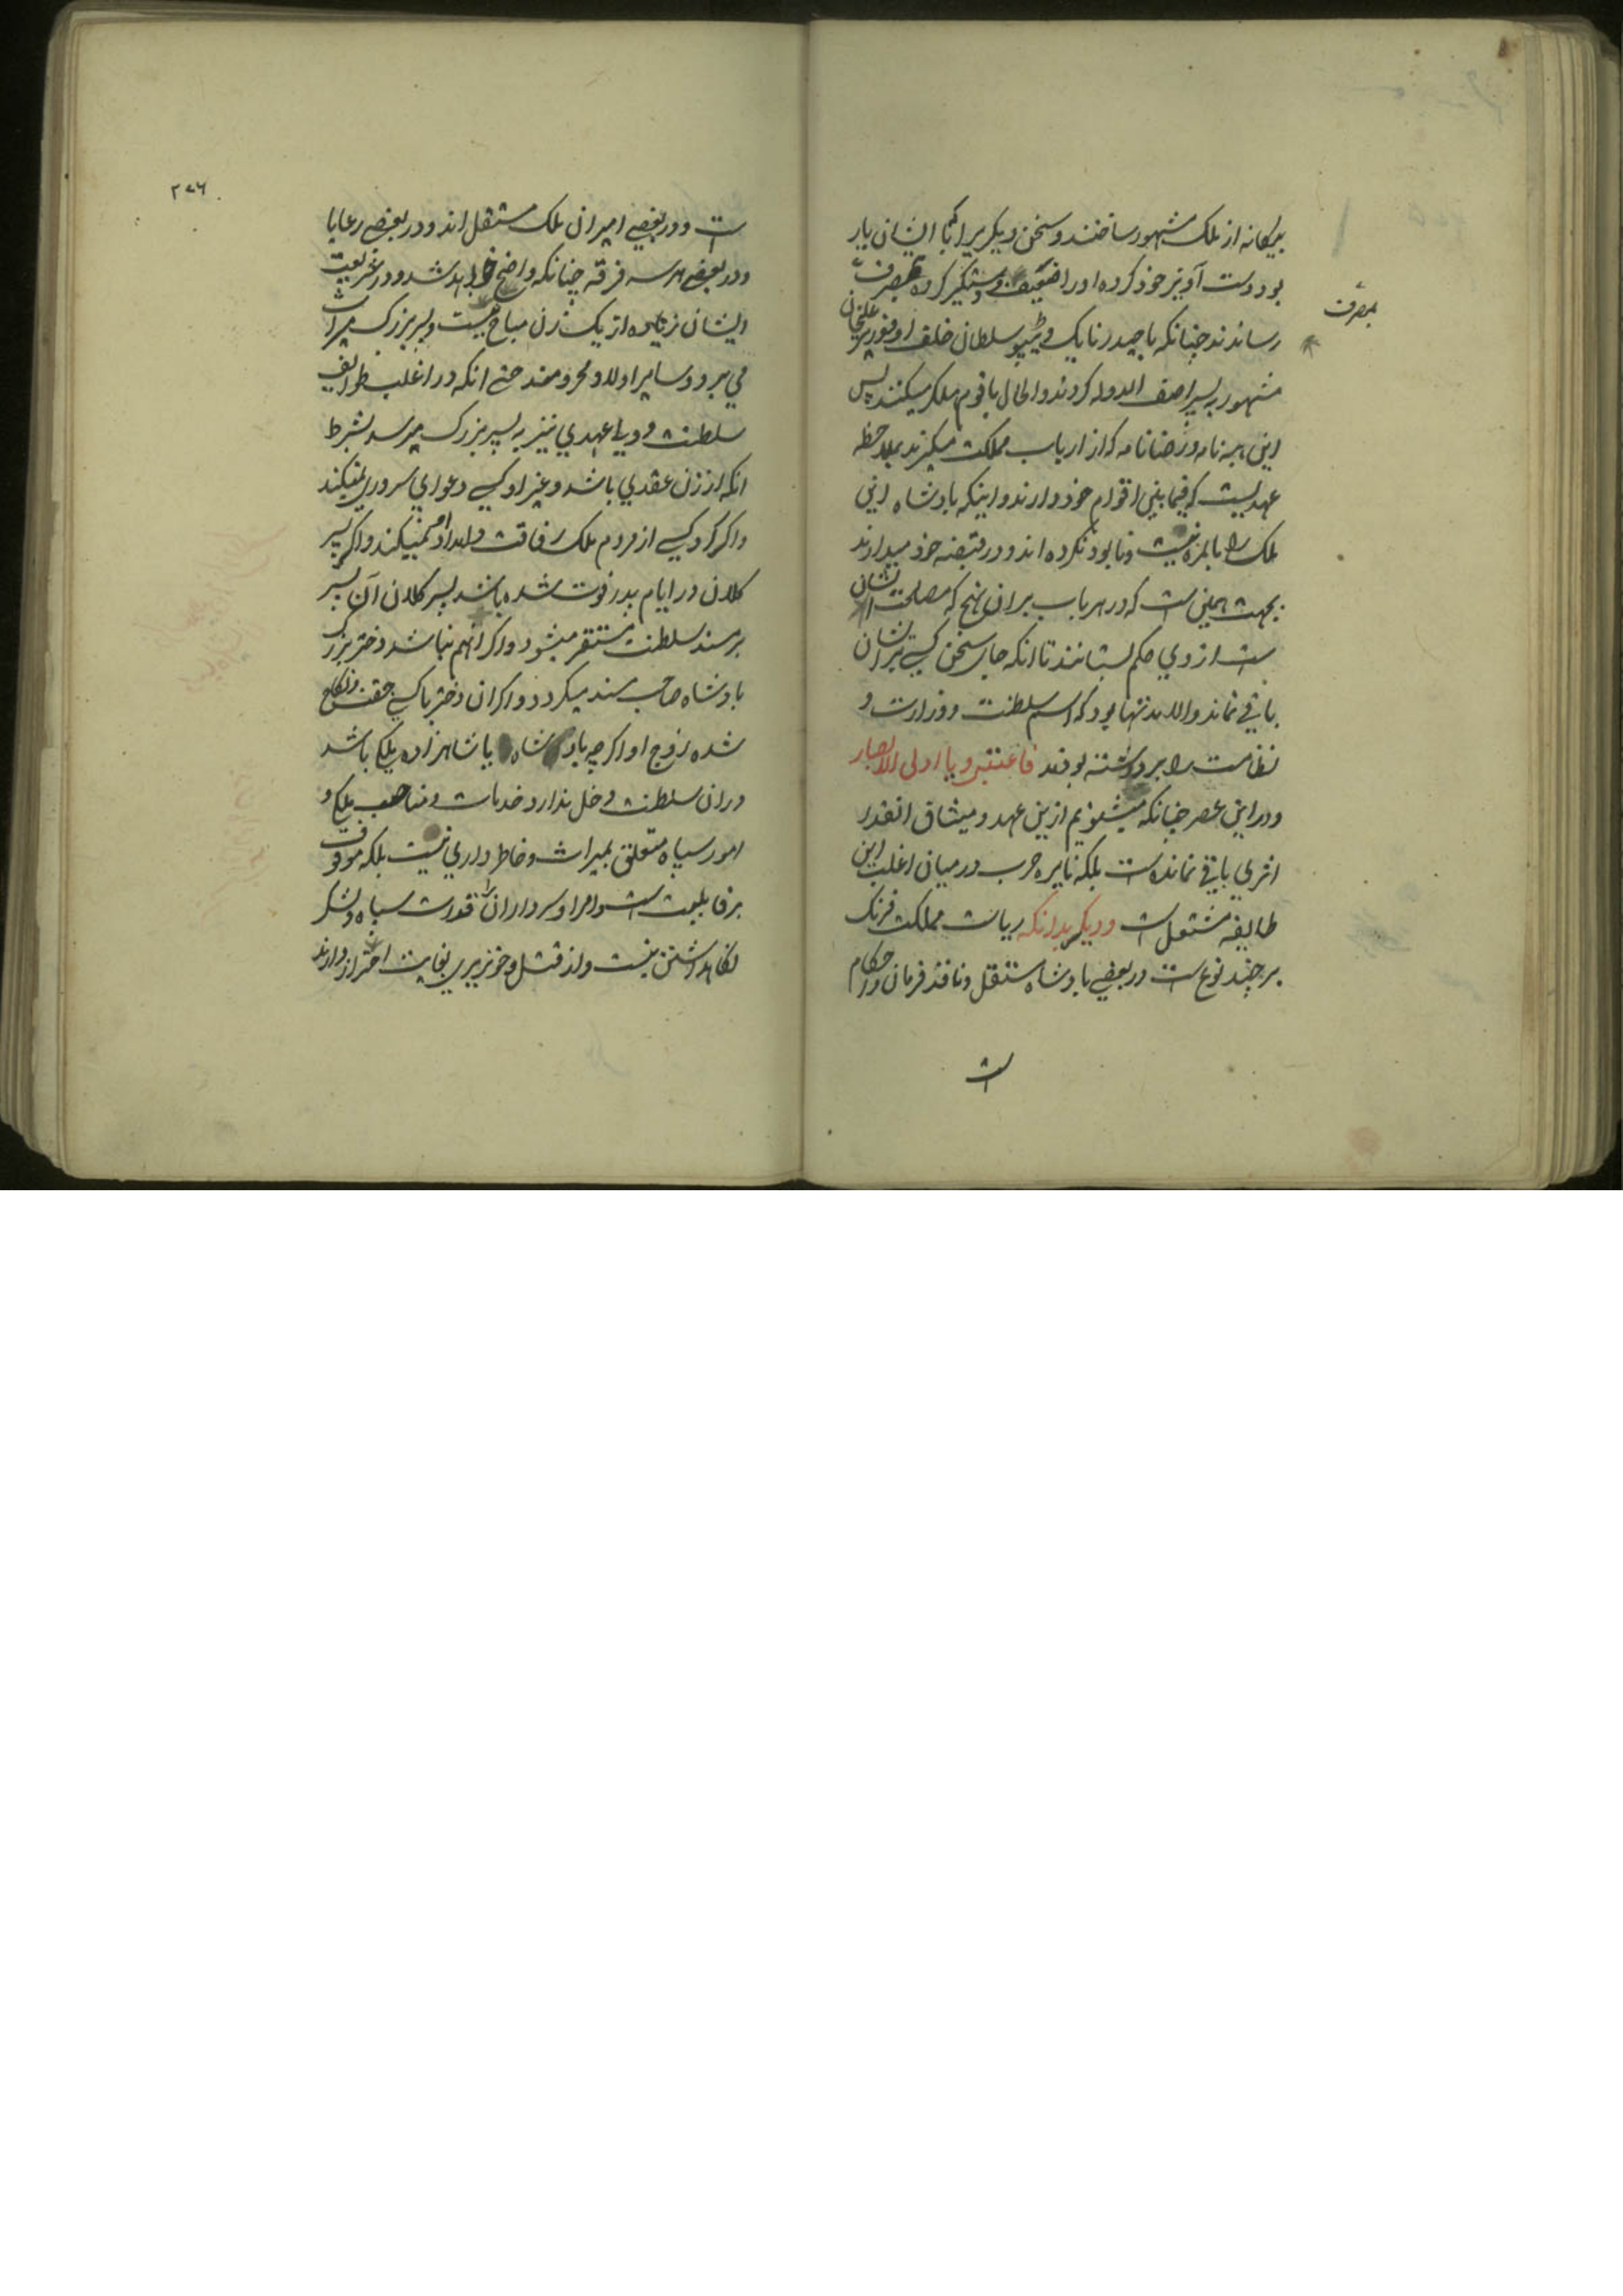 بیکانه از ملک مشهور ساختند و سخن دیکر برا ایشان یار
بود دست آویز خود کرده او را ضعیف و دستکیر کرده بمصرف
بمصرف
رسانند چنانکه با حیدر نایک و ٹیپو سلطان خلف او و
مشهور به پسر اصف الدوله کردند و الحال با قوم میکنند پس
این هبه نامه و رضانامه که از ارباب مملکت میکیرند بملاحظه
عهدیست که فیمابین اقوام خود دارند و اینکه بادشاه این
ملک را بالمره نیست و نابود نکرده اند و در قبضه خود میدارند
بجهت همین است که در هر باب بر آن نهج که مصلحت ایشان
ست از وی حکم بستانند تا انکه جای سخن کسی بر ایشان
باقی نماند و الا بدنتها بود که اسم سلطنت و وزارت و
نظامت را برداشته بودند فاعتبرو یا اولی الابصار
و در این عصر چنانکه میشنویم ازین عهد و میثاق انقدر
اثری باقی نمانده ست بلکه نایره حرب در میان اغلب این
طایفه مشتعل است و دیکر بدانکه ریاست مملکت فرنک
بر چند نوع ست در بعضی بادشاه مستقل و نافذ فرمان و احکام
است
۲۷۶
ست و در بعضی امیران ملک مستقل اند و در بعضی رعایا
و در بعضی هر سه فرقه چنانکه واضح خواهد شد و در شریعت
ایشان زیاده از یک زن مباح نیست و پسر بزرک میراث
می برد و سایر اولاد محرومند حتی انکه در اغلب طوایف
سلطنت و ولیعهدی نیز به پسر بزرک میرسد بشرط
انکه از زن عقدی باشد و غیر او کسی دعوای سروری نمیکند
و اکر کرد کسی از مردم ملک رفاقت و امداد او نمیکند و اکر پسر
کلان در ایام پدر فوت شده باشد پسر کلان آن پسر
بر مسند سلطنت مستقر میشود و اکر انهم نباشد دختر بزرک
بادشاه صاحب مسند میکردد و اکر ان دختر با کسی جفت و نکاح
شده زوج او اکرچه بادشاه یا شاهزاده ملکی باشد
دران سلطنت دخل ندارد و خدمات و مناصب ملکی و
امور سپاه متعلق بمیراث و خاطر داری نیست بلکه موقوف
بر قابلیت است و امرا و سرداران را قدرت سپاه و لشکر
نکاهداشتن نیست و از قتل و خونریزی بغایت احتراز دارند